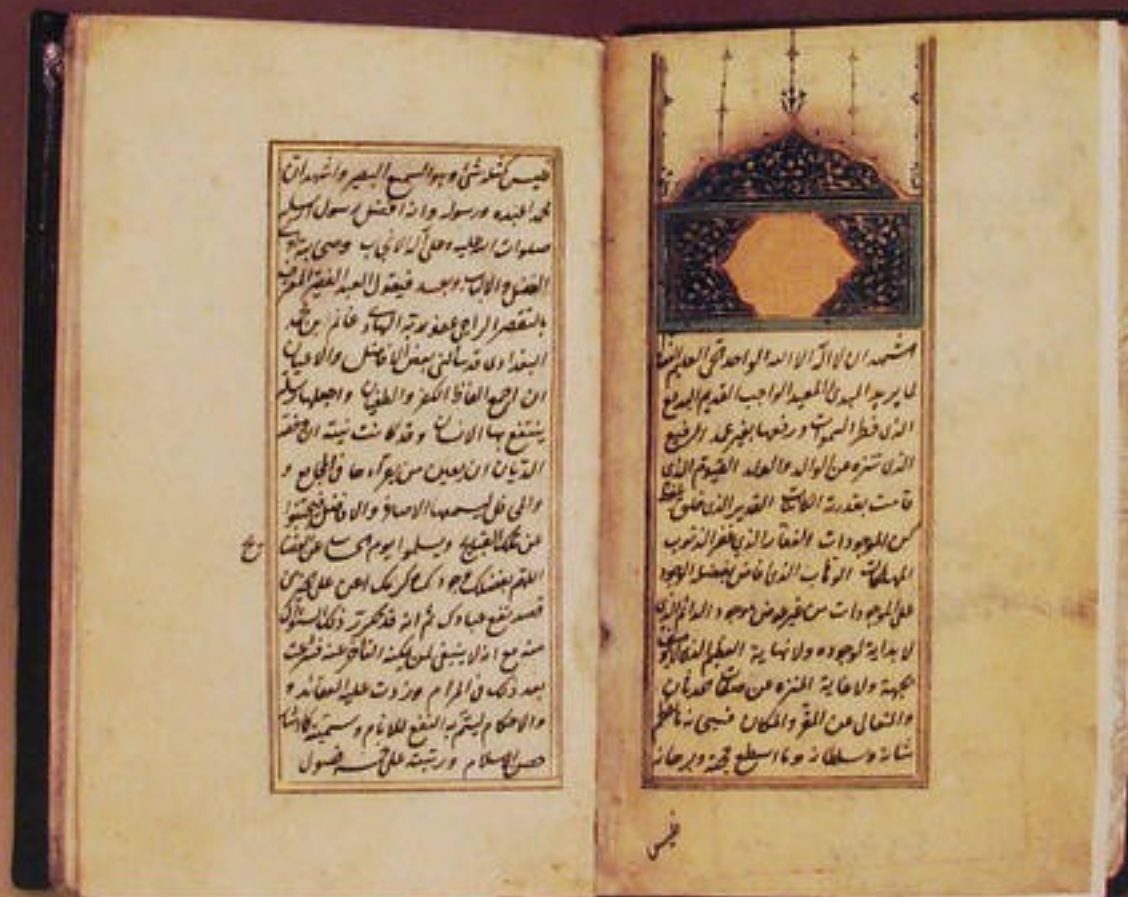 اشهد ان لا اله الا الله الواحد الحي العليم الفعال
لما يريد المبدئ المعيد الواجب القديم البديع
الذى فطر السموات ورفعها بغير عمد الرفيع
الذى تنزه عن الوالد والولد القيوم الذى
قامت بقدرته الكائنات القدير الذى خلق
كل الموجودات الغفار الذى يغفر الذنوب
المهلكات الوهاب الذى فاض بفضله الوجود
على الموجودات من غير عوض موجود الدائم الذى
لا بداية لوجوده ولا نهاية العظيم الذى
بجهة ولا غاية المنزه عن
والمتعال عن المقر والمكان فسبحانه ما اعظم
شانه وسلطانه وما اسطع حجته وبرهانه
فليس
فليس كمثله شئ وهو السميع البصير واشهد ان
محمدا عبده ورسوله وانه افضل رسول ارسله
صلوات الله عليه وعلى آله الانجاب وصحبه
الفضل والالباب وبعد فيقول العبد الفقير المعترف
بالتقصير الراجى عفو ربه الهادى غانم ابن محمد
البغدادى قد سالنى بعض الافاضل والاعيان
ان اجمع الفاظ الكفر والطغيان واجعلها رسالة
ينتفع بها الانسان وقد كانت نيته ان وفقه
الديان ان يعين من يقرأها فى المجامع و
والمحافل ليسمعها الاصاغر والافاضل فيجتنبوا
عن تلك القبايح ويسلموا يوم
اللهم بفضلك وجودك وكرمك اعن على
قصد نفع عبادك ثم انه قد تكرر ذلك السؤال
منه مع انه لا ينبغى لمن يمكنه التأخر عنه فشرعت
بعد ذلك فى المرام وزدت عليه العقائد و
والاحكام ليتم به النفع للانام وسميته
حصن الاسلام ورتبته على خمسة فصول